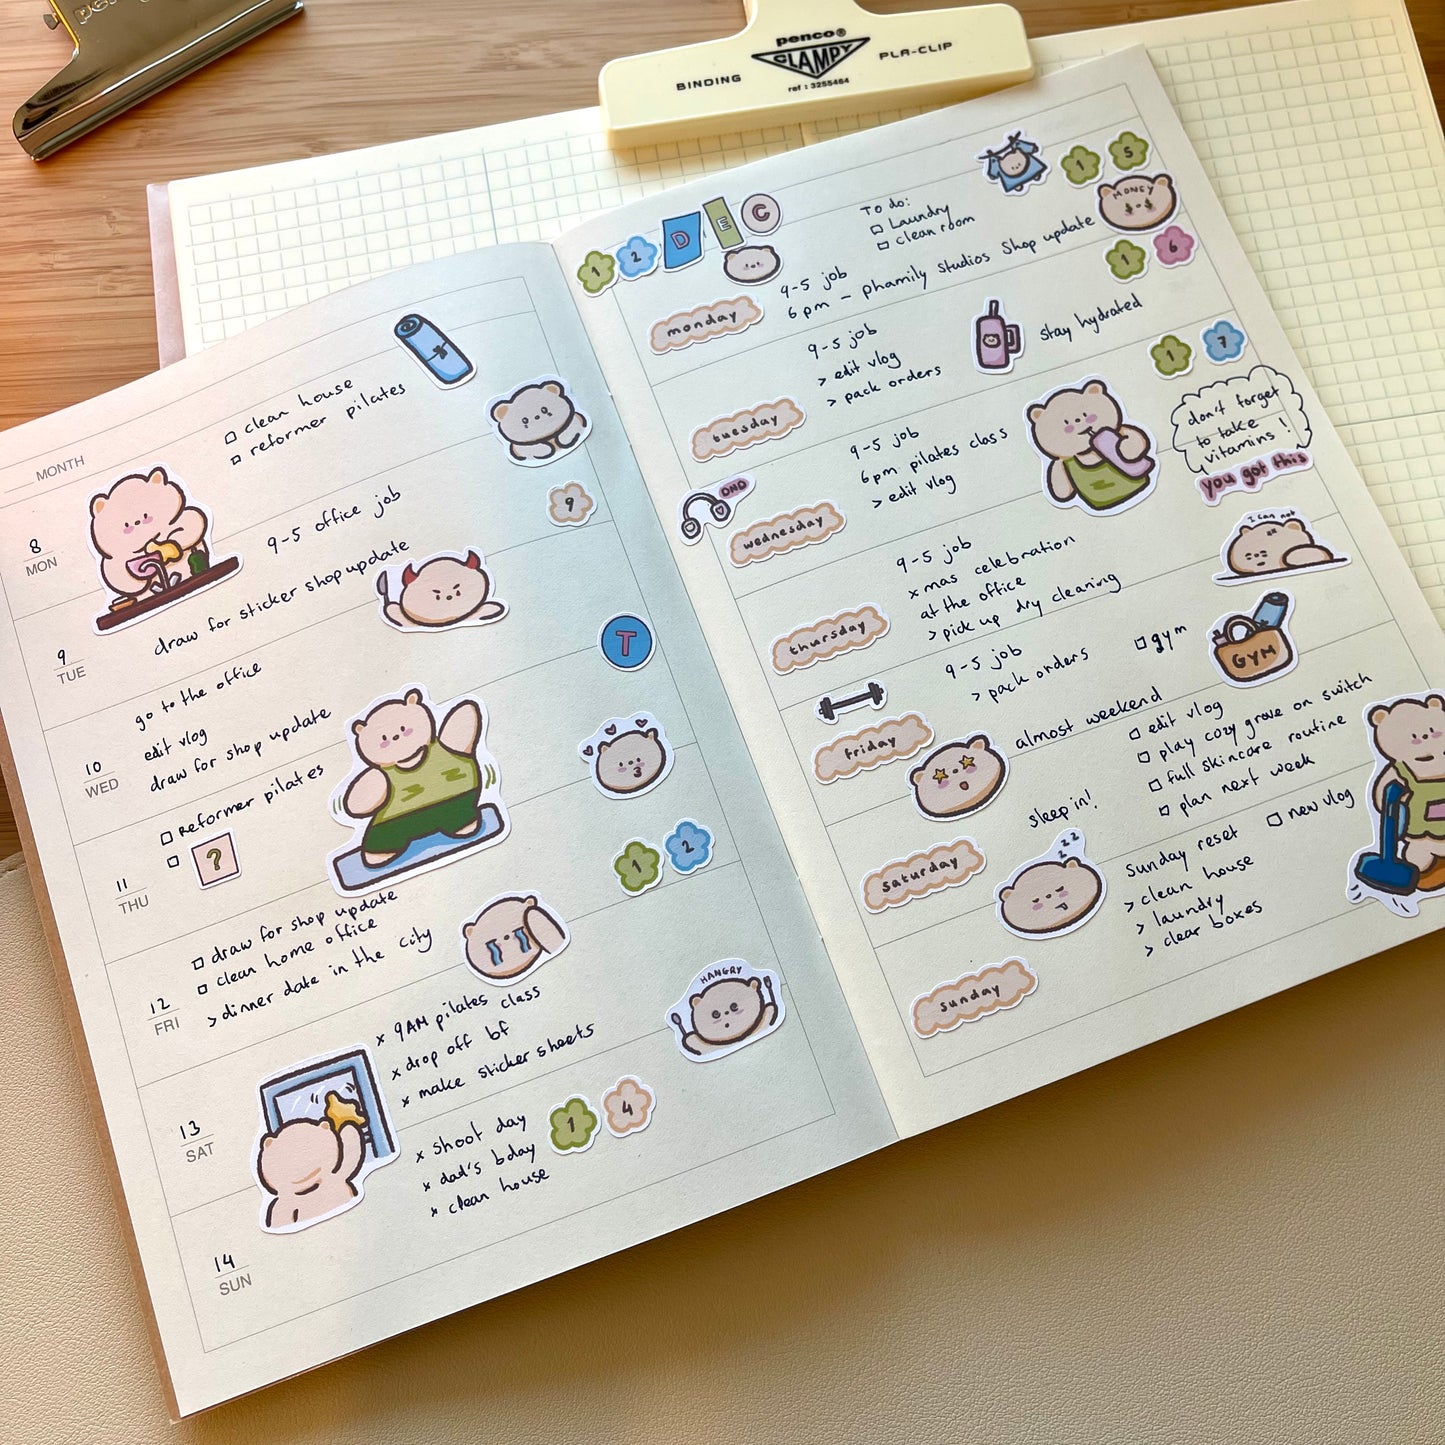 penco®
CLAMPY
BINDING
PLA-CLIP
ref : 3255464
MONTH
clean house
reformer pilates
8
MON
9-5 office job
9
draw for sticker shop update
9
TUE
go to the office
edit vlog
draw for shop update
T
10
WED
Reformer pilates
?
11
THU
draw for shop update
clean home office
> dinner date in the city
1 2
12
FRI
x 9AM pilates class
x drop off bf
x make sticker sheets
HANGRY
13
SAT
x shoot day
x dad's bday
x clean house
1 4
14
SUN
1 2 D E C
To do:
Laundry
clean room
1 5
MONEY
monday
9-5 job
6pm - phamily studios Shop update
1 6
tuesday
9-5 job
> edit vlog
> pack orders
stay hydrated
1 7
DND
wednesday
9-5 job
6pm pilates class
> edit vlog
don't forget
to take
vitamins !
you got this
thursday
9-5 job
xmas celebration
at the office
> pick up dry cleaning
I can not
friday
9-5 job
> pack orders
gym
GYM
almost weekend
saturday
sleep in!
edit vlog
play cozy grove on switch
full skincare routine
plan next week
z z z
sunday
sunday reset
> clean house
> laundry
> clear boxes
new vlog